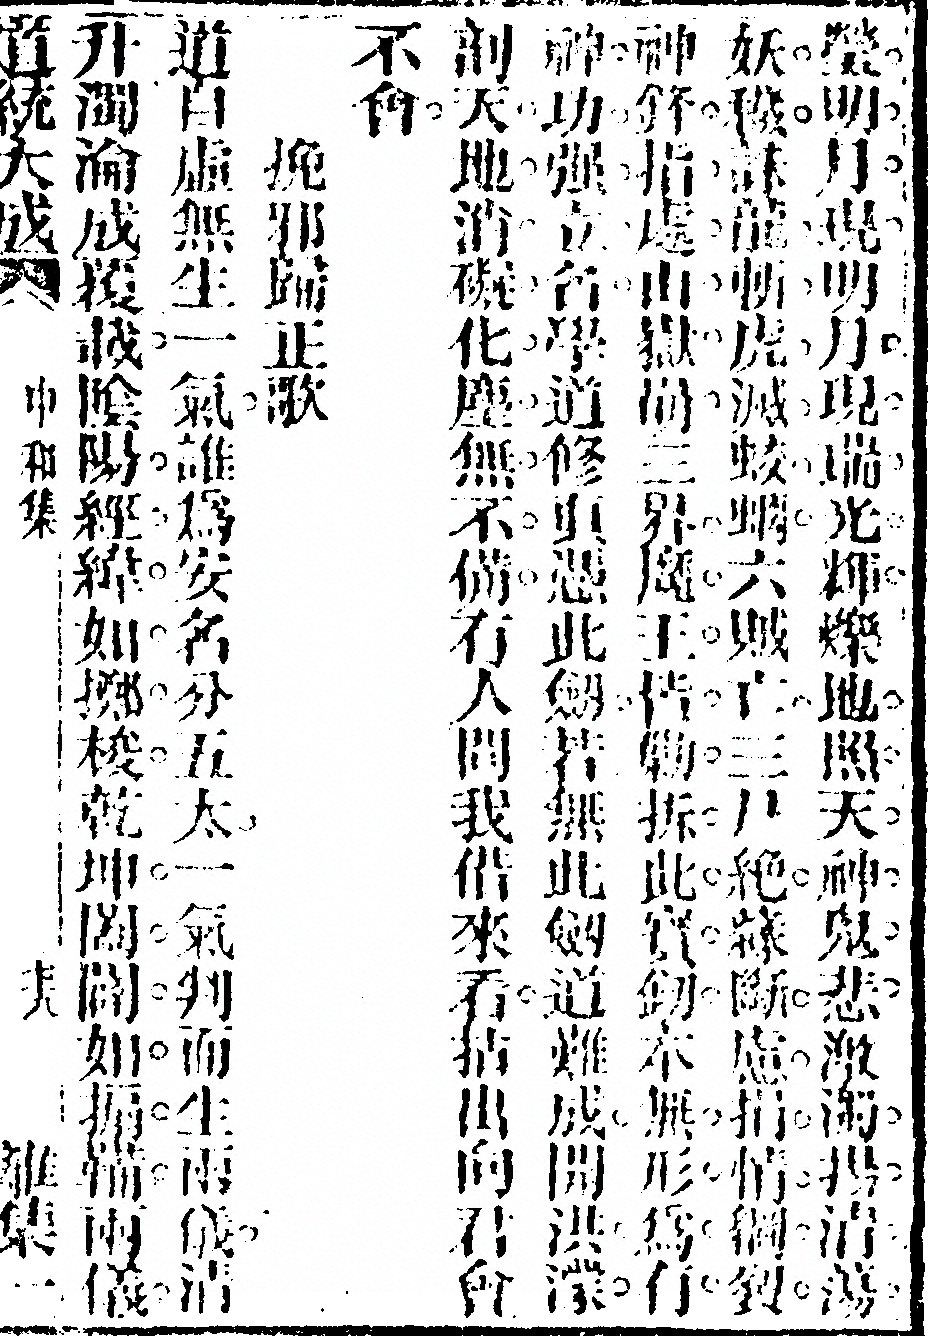 瑩明月現明月現瑞光輝爍地照天神鬼悲激濁揚清蕩
妖穢誅龍斬虎滅蛟蜩六賊亡三尸絕緣斷慮捐情網劉
神鋒指處山嶽崩三界魔王皆勦拆此寶劒本無形爲有
神功強立名學道修真憑此劒若無此劒道難成開洪濛
剖天地消礙化塵無不備有人問我借來看拈出向君會
不會
挽邪歸正歌
道自虛無生一氣誰爲安名分五太一氣判而生兩儀清
升濁淪成覆載陰陽經緯如擲梭乾坤闔闢如搧鞴兩儀
道統大成 中和集 雜集一